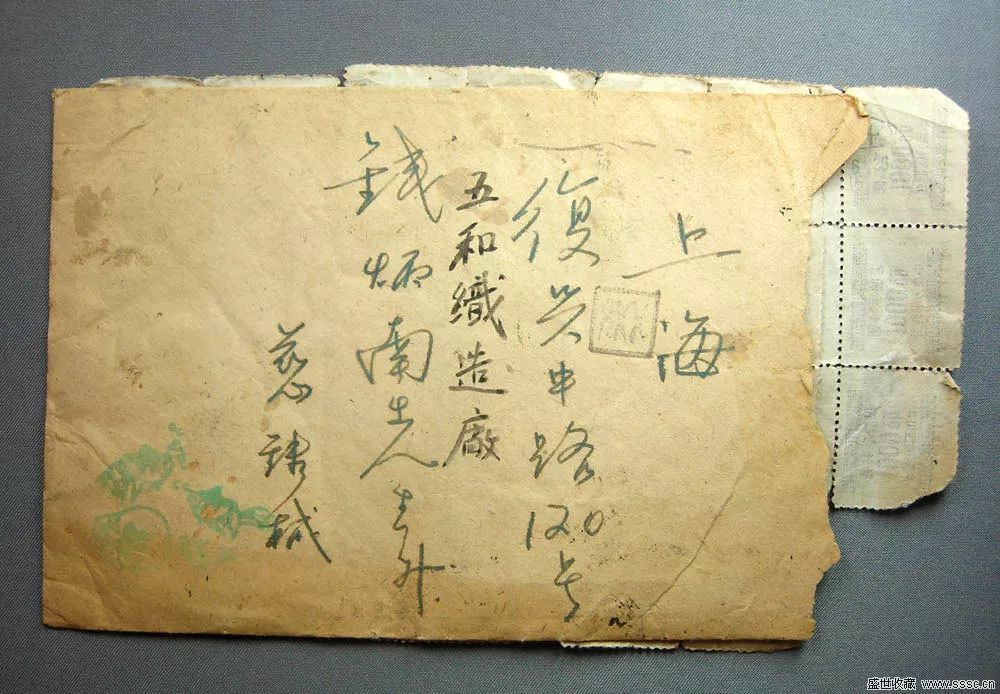 上海
復兴中路120号
五和織造廠
錢炳南先生升
慈
盛世收藏 www.sssc.cn